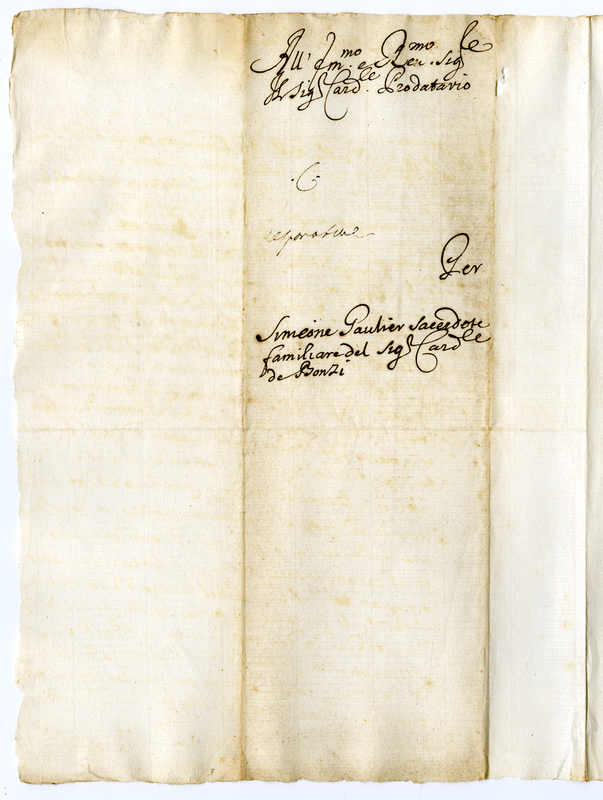 All' Em.mo e Rev.mo Sig.le
Il Sig.r Card.le Prodatario
Per
Simeone Gaulier Sacerdote
familiare del Sig.r Card.le
de Bonzi